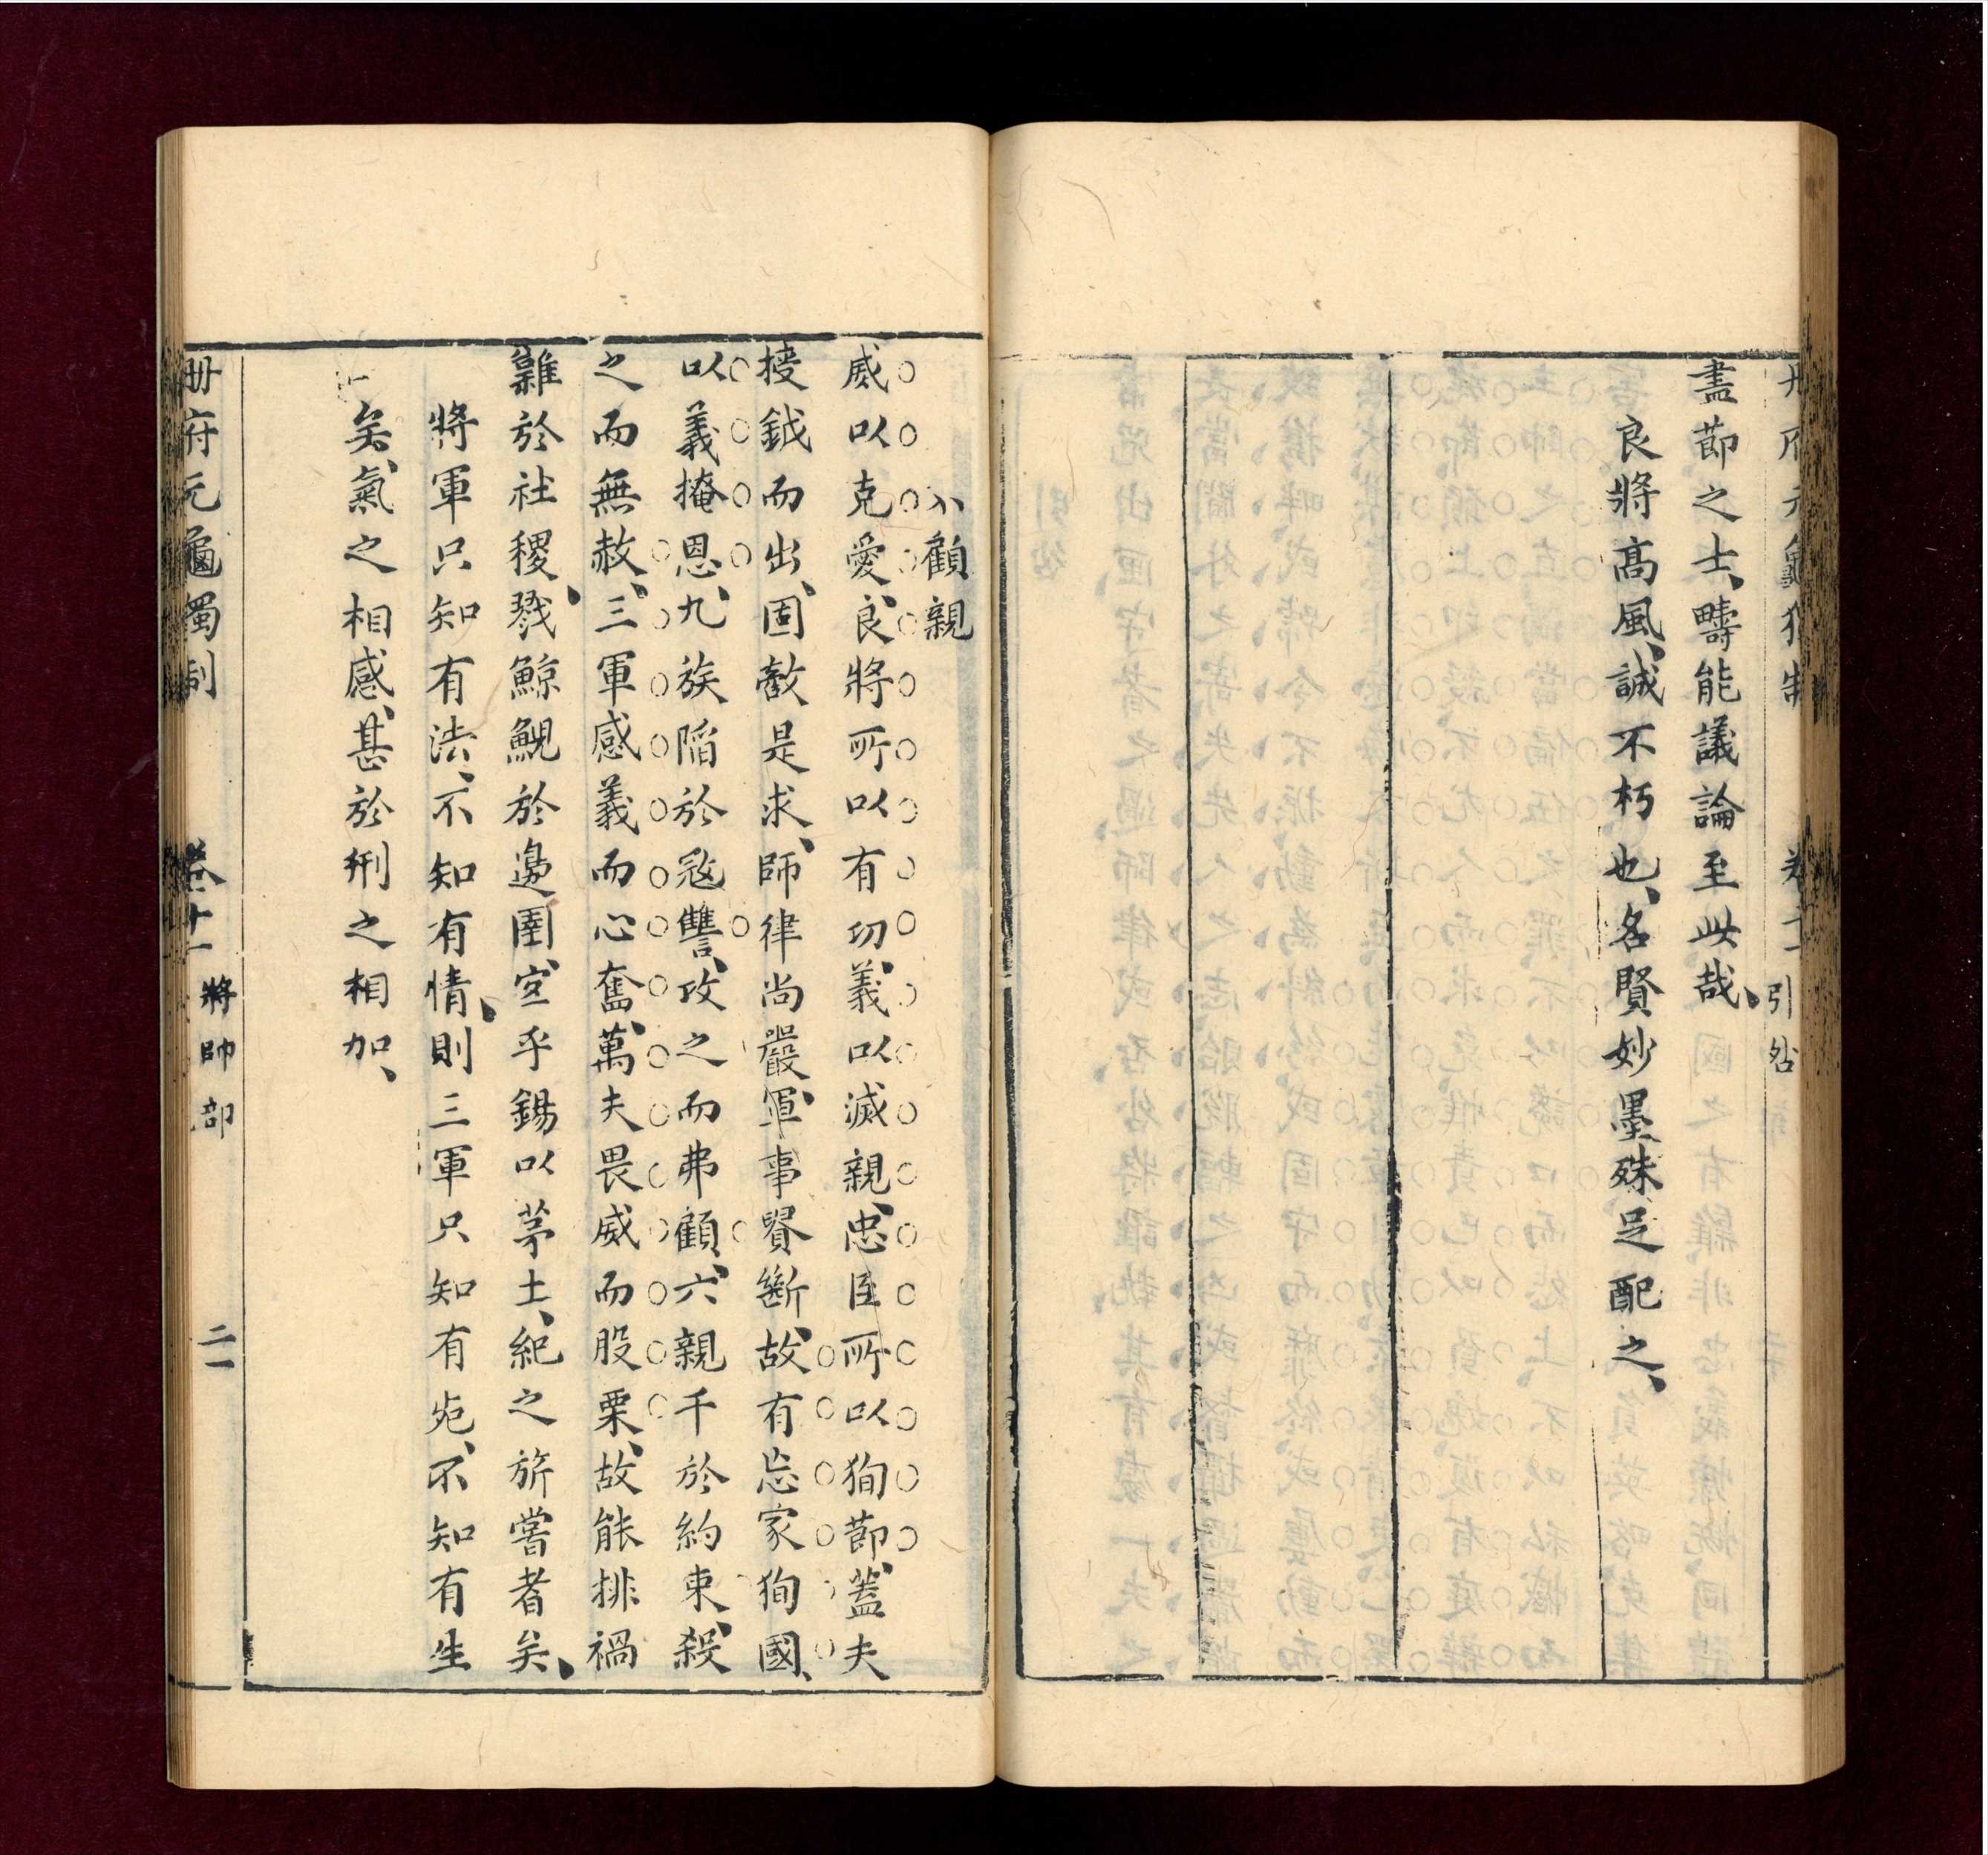 冊府元龜獨制 卷十一 引咎
盡節之士、疇能議論至此哉、
良將高風、誠不朽也、名賢妙墨殊足配之、
不顧親
威以克愛、良將所以有功、義以滅親、忠臣所以狥節、蓋夫
授鉞而出、固敵是求、師律尚嚴、軍事貴斷、故有忘家狥國、
以義掩恩、九族陷於寇讐、攻之而弗顧、六親干於約束、殺
之而無赦、三軍感義而心奮、萬夫畏威而股栗、故能排禍
難於社稷、戮鯨鯢於邊圉、宜乎錫以茅土、紀之旂嘗者矣、
將軍只知有法、不知有情、則三軍只知有死、不知有生
矣、氣之相感、甚於刑之相加、
冊府元龜獨制 卷十一 將帥部 二一